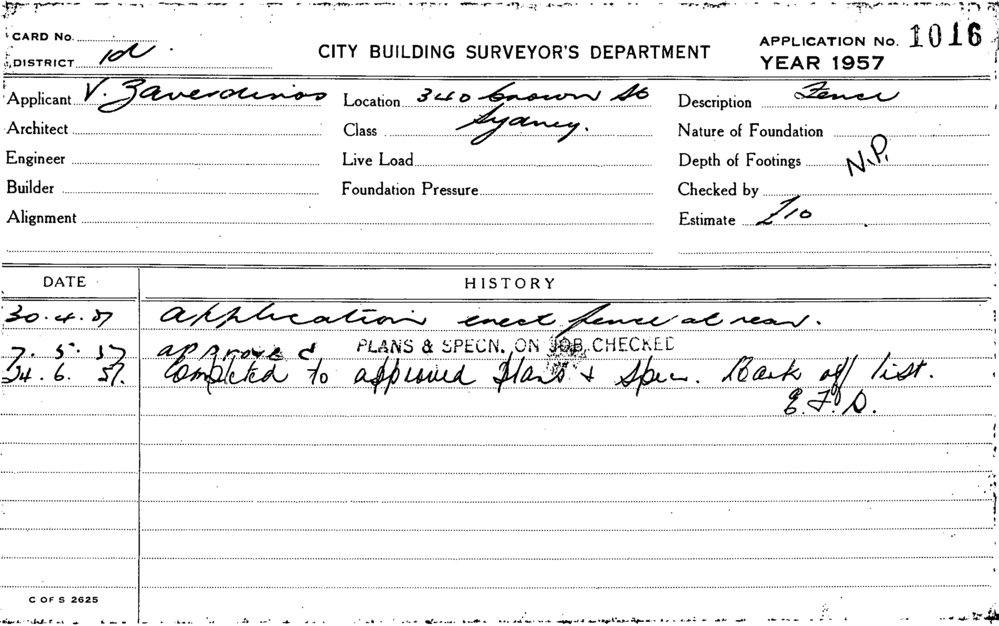 CARD No.
DISTRICT 1d
CITY BUILDING SURVEYOR'S DEPARTMENT
APPLICATION No. 1016
YEAR 1957
Applicant V. Zaverdinos Location 340 Crown St Description Fence
Architect Class Sydney. Nature of Foundation
Engineer Live Load Depth of Footings N.P.
Builder Foundation Pressure Checked by
Alignment Estimate £10
DATE HISTORY
30.4.57 Application erect fence at rear.
7.5.57 approved PLANS & SPECN. ON JOB CHECKED
24.6.57. Completed to approved plans & spec. Mark off list.
E.F.D.
C OF S 2625